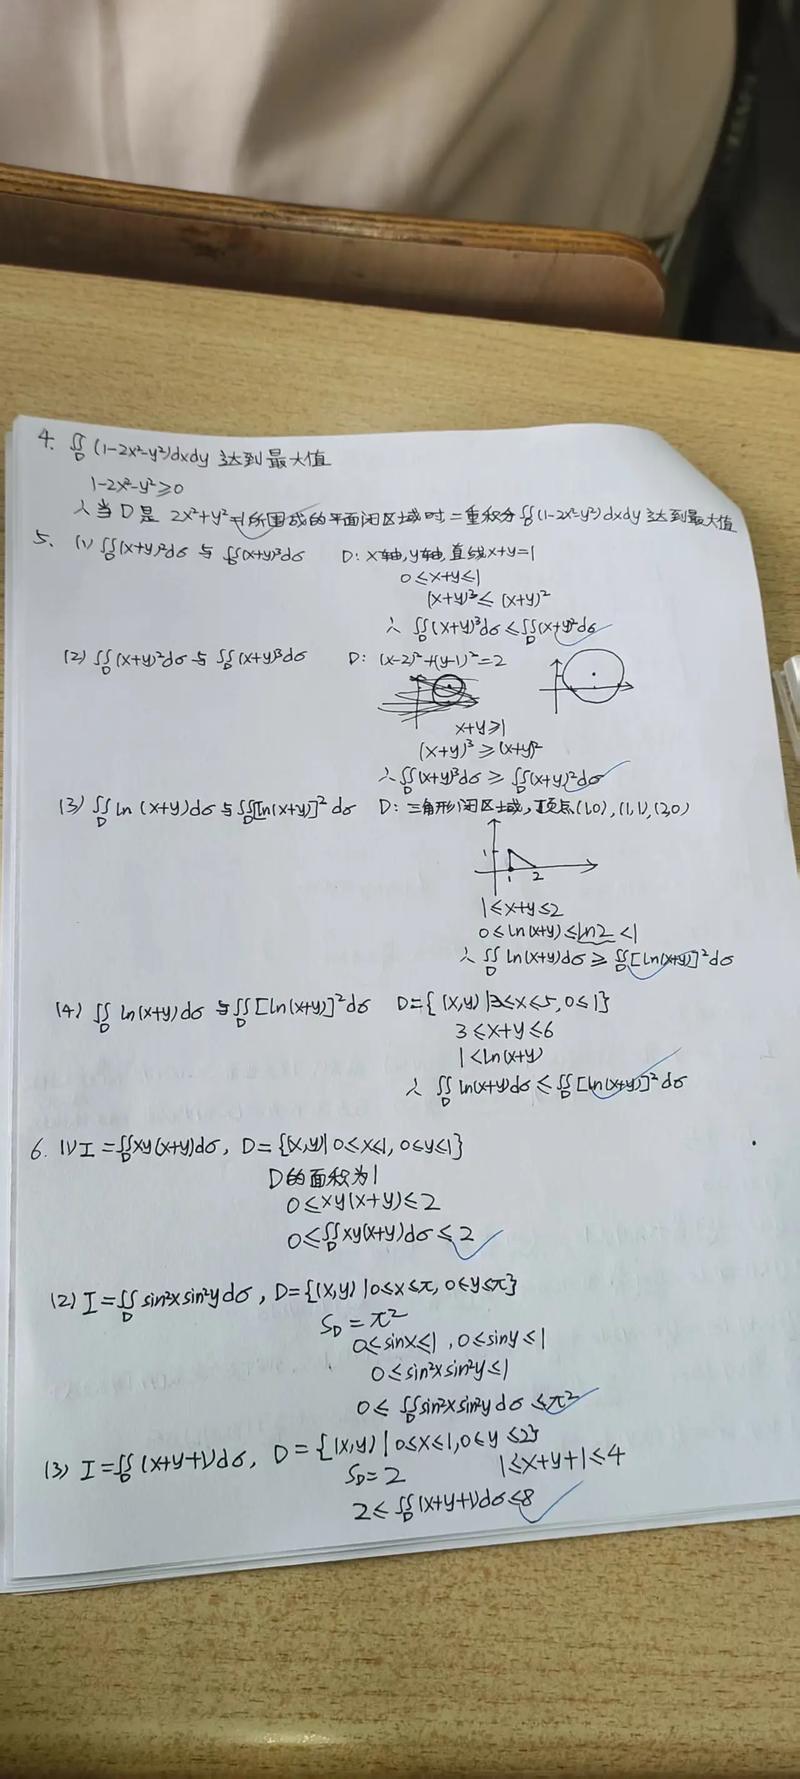 4. ∬_D (1-2x²-y²)dxdy 达到最大值
1-2x²-y²≥0
∴当D是 2x²+y²=1所围成的平面闭区域时二重积分∬_D(1-2x²-y²)dxdy达到最大值
5. (1) ∬_D(x+y)²dσ 与 ∬_D(x+y)³dσ D: x轴,y轴,直线x+y=1
0≤x+y≤1
(x+y)³≤(x+y)²
∴ ∬_D(x+y)³dσ≤∬_D(x+y)²dσ
(2) ∬_D(x+y)²dσ与∬_D(x+y)³dσ D: (x-2)²+(y-1)²=2
x+y≥1
(x+y)³≥(x+y)²
∴∬_D(x+y)³dσ ≥ ∬_D(x+y)²dσ
(3) ∬_D ln(x+y)dσ与∬_D[ln(x+y)]²dσ D: 三角形闭区域,顶点(1,0),(1,1),(2,0)
1
1 2
1≤x+y≤2
0≤ln(x+y)≤ln2<1
∴ ∬_D ln(x+y)dσ≥∬_D[ln(x+y)]²dσ
(4) ∬_D ln(x+y)dσ 与∬_D[ln(x+y)]²dσ D={(x,y)|3≤x≤5,0≤1}
3≤x+y≤6
1<ln(x+y)
∴ ∬_D ln(x+y)dσ≤∬_D[ln(x+y)]²dσ
6. (1) I=∬_D xy(x+y)dσ, D={(x,y)|0≤x≤1,0≤y≤1}
D的面积为1
0≤xy(x+y)≤2
0≤∬_D xy(x+y)dσ≤2
(2) I=∬_D sin²xsin²ydσ, D={(x,y)|0≤x≤π,0≤y≤π}
S_D=π²
0≤sinx≤1,0≤siny≤1
0≤sin²xsin²y≤1
0≤∬_D sin²xsin²ydσ≤π²
(3) I=∬_D(x+y+1)dσ, D={(x,y)|0≤x≤1,0≤y≤2}
S_D=2 1≤x+y+1≤4
2≤∬_D(x+y+1)dσ≤8